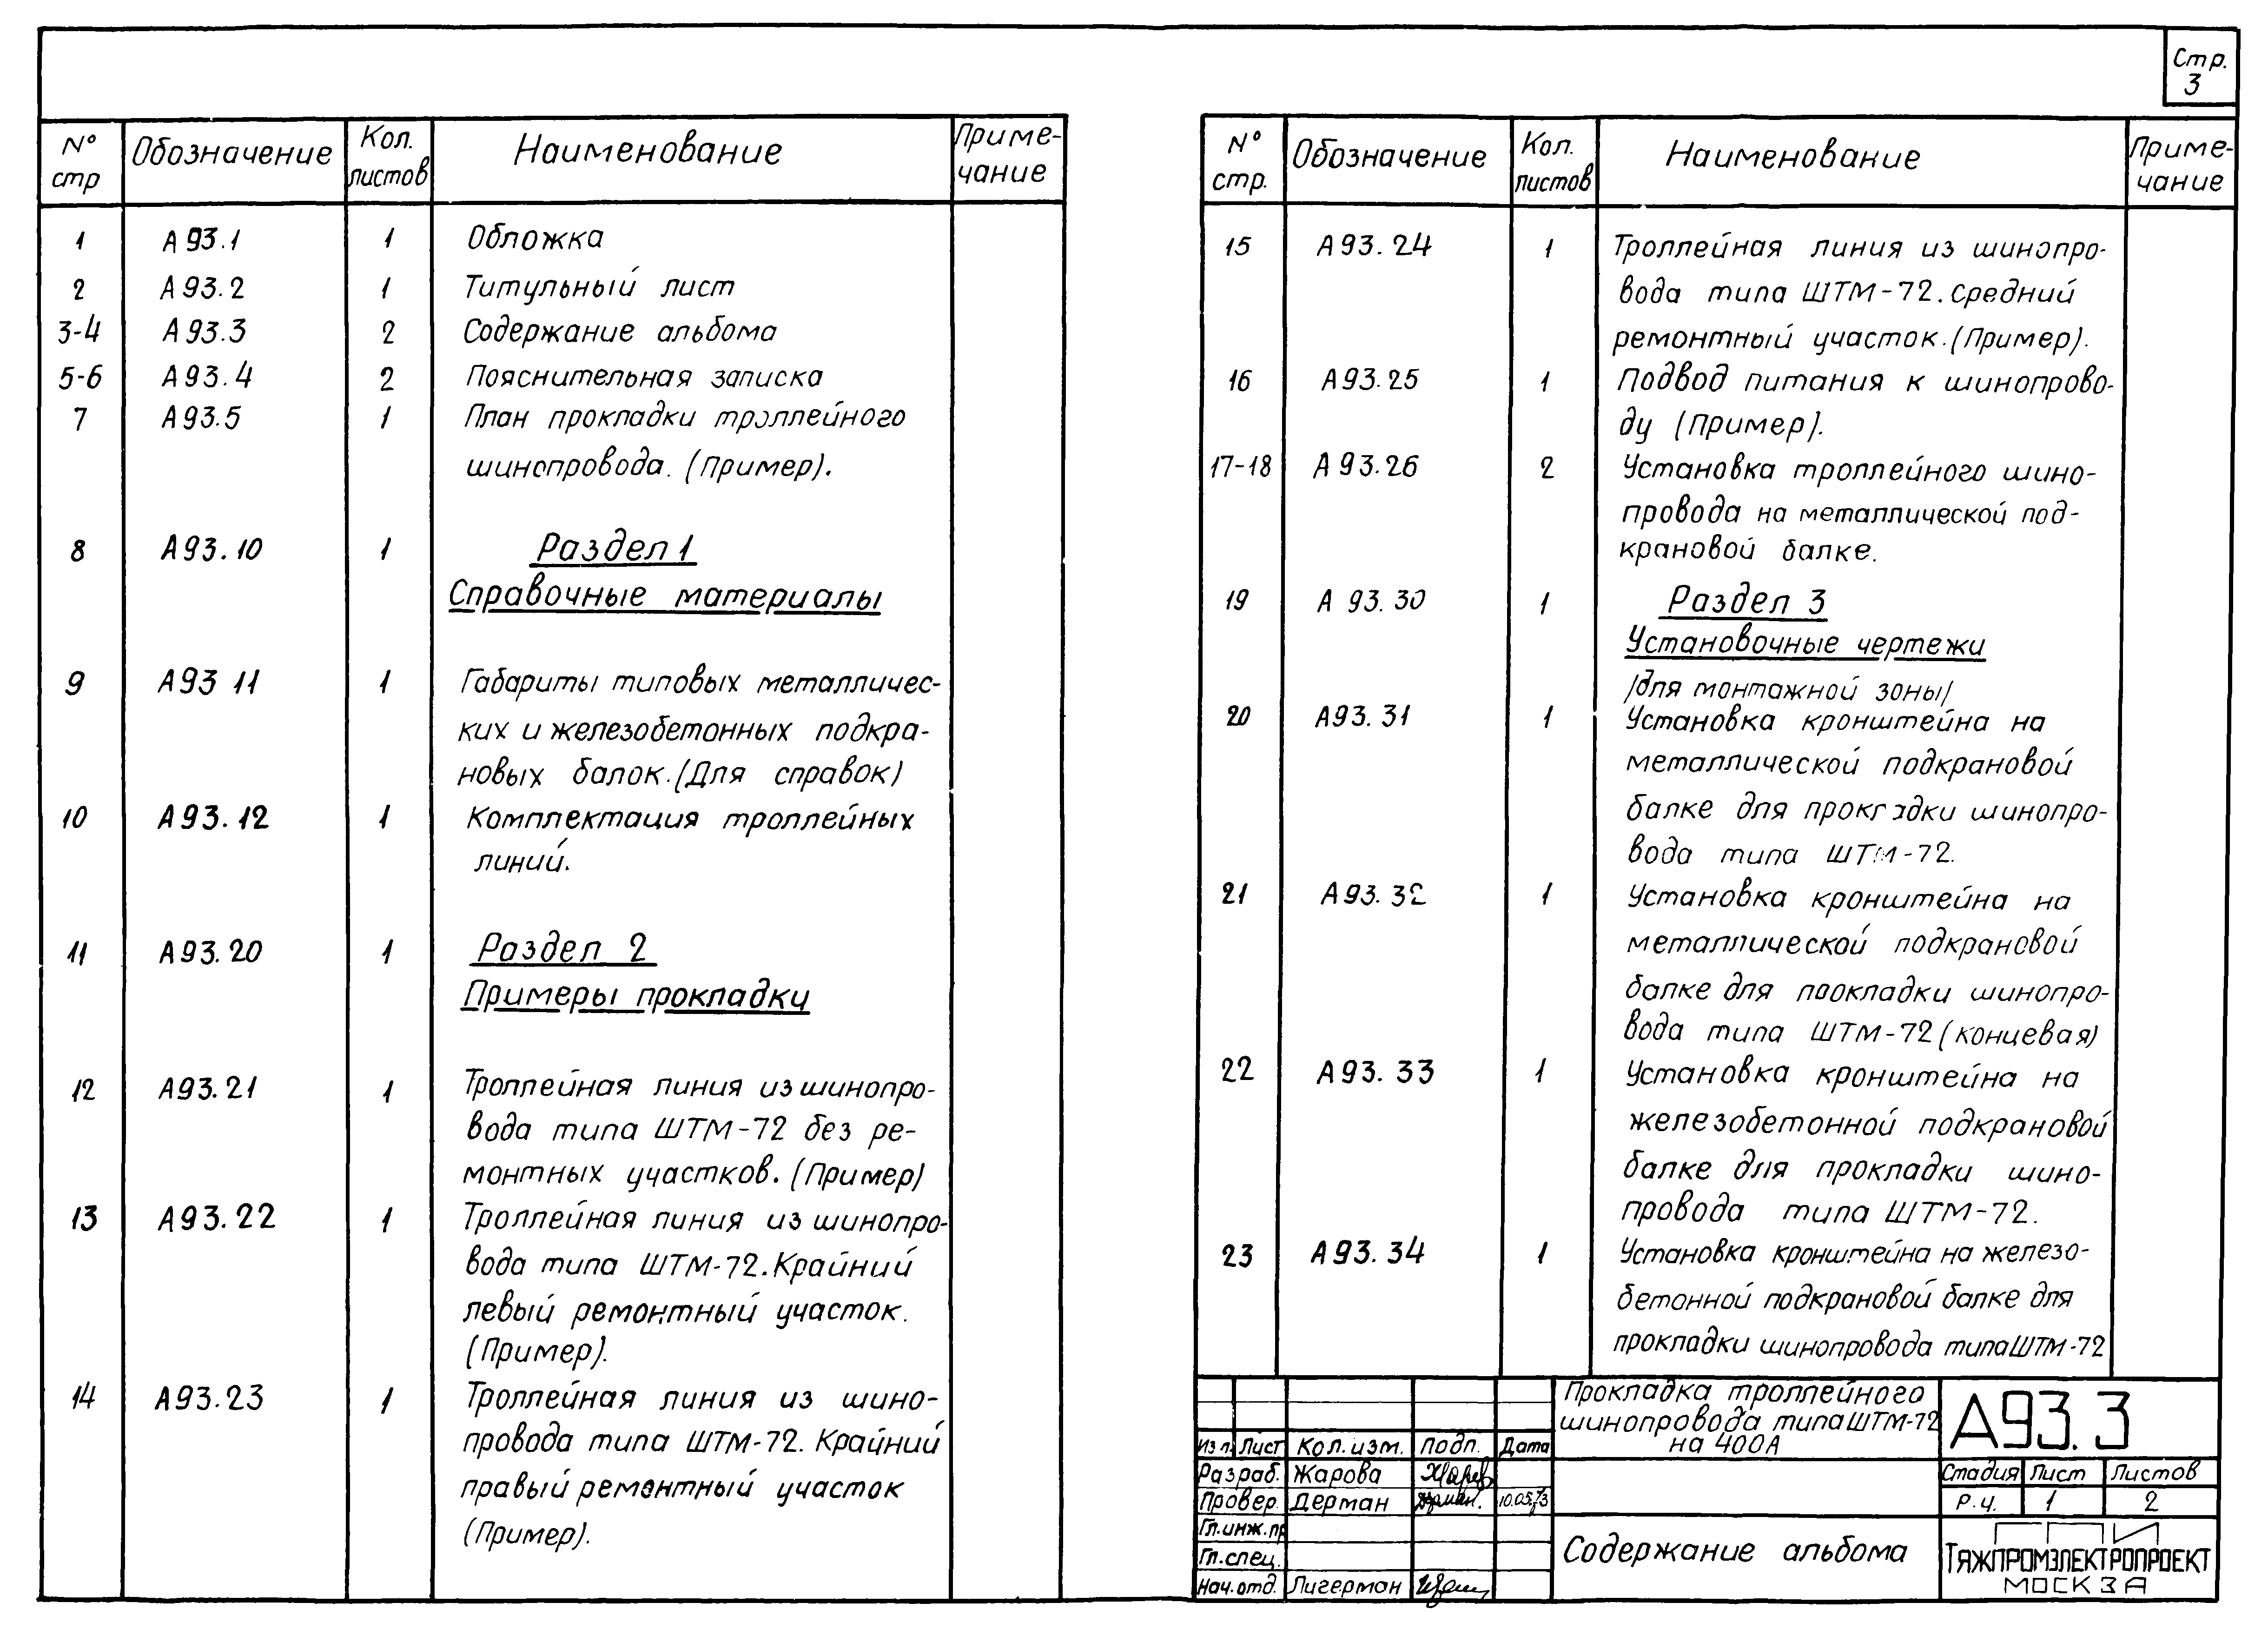 Стр.
3
N° стр Обозначение Кол. листов Наименование Примечание
1 А93.1 1 Обложка
2 А93.2 1 Титульный лист
3-4 А93.3 2 Содержание альбома
5-6 А93.4 2 Пояснительная записка
7 А93.5 1 План прокладки троллейного
шинопровода. (Пример).
8 А93.10 1 Раздел 1
Справочные материалы
9 А93 11 1 Габариты типовых металличес-
ких и железобетонных подкра-
новых балок. (Для справок)
10 А93.12 1 Комплектация троллейных
линий.
11 А93.20 1 Раздел 2
Примеры прокладки
12 А93.21 1 Троллейная линия из шинопро-
вода типа ШТМ-72 без ре-
монтных участков. (Пример)
13 А93.22 1 Троллейная линия из шинопро-
вода типа ШТМ-72. Крайний
левый ремонтный участок.
(Пример).
14 А93.23 1 Троллейная линия из шино-
провода типа ШТМ-72. Крайний
правый ремонтный участок
(Пример).
N° стр. Обозначение Кол. листов Наименование Примечание
15 А93.24 1 Троллейная линия из шинопро-
вода типа ШТМ-72. Средний
ремонтный участок. (Пример).
16 А93.25 1 Подвод питания к шинопрово-
ду (Пример).
17-18 А93.26 2 Установка троллейного шино-
провода на металлической под-
крановой балке.
19 А 93.30 1 Раздел 3
Установочные чертежи
/для монтажной зоны/
20 А93.31 1 Установка кронштейна на
металлической подкрановой
балке для прокладки шинопро-
вода типа ШТМ-72.
21 А93.32 1 Установка кронштейна на
металлической подкрановой
балке для прокладки шинопро-
вода типа ШТМ-72 (концевая)
22 А93.33 1 Установка кронштейна на
железобетонной подкрановой
балке для прокладки шино-
провода типа ШТМ-72.
23 А93.34 1 Установка кронштейна на железо-
бетонной подкрановой балке для
прокладки шинопровода типа ШТМ-72
Прокладка троллейного
шинопровода типа ШТМ-72
на 400А
А93.3
Изл. Лист Кол.изм. Подп. Дата
Разраб. Жарова
Провер. Дерман 10.05.73
Гл.инж.пр
Гл.спец.
Нач.отд. Лигерман
Стадия Лист Листов
Р.ч. 1 2
Содержание альбома
ТЯЖПРОМЭЛЕКТРОПРОЕКТ
МОСКВА